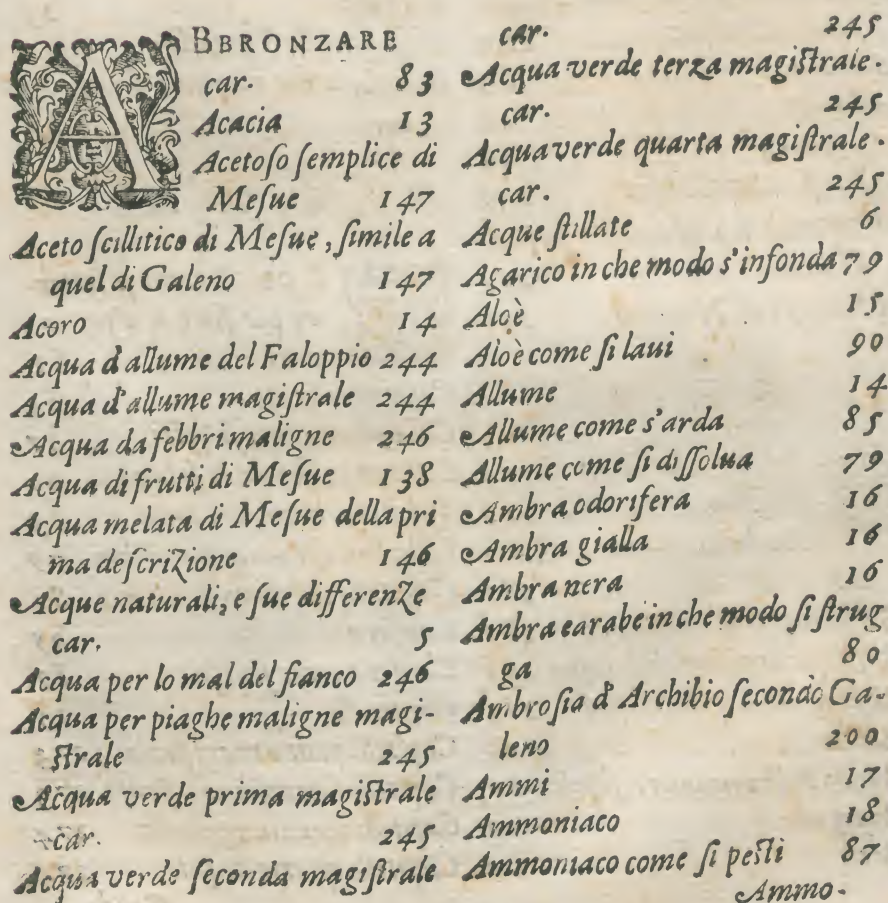 ABBRONZARE
car. 83
Acacia 13
Acetoſo ſemplice di
Meſue 147
Aceto ſcillitico di Meſue, ſimile a
quel di Galeno 147
Acoro 14
Acqua d allume del Faloppio 244
Acqua d'allume magiſtrale 244
Acqua da febbri maligne 246
Acqua di frutti di Meſue 138
Acqua melata di Meſue della pri
ma deſcrizione 146
Acque naturali, e ſue differenze
car. 5
Acqua per lo mal del fianco 246
Acqua per piaghe maligne magi-
ſtrale 245
Acqua verde prima magiſtrale
car. 245
Acqua verde ſeconda magiſtrale
car. 245
Acqua verde terza magiſtrale.
car. 245
Acqua verde quarta magiſtrale.
car. 245
Acque ſtillate 6
Agarico in che modo s'infonda 79
Aloè 15
Aloè come ſi laui 90
Allume 14
Allume come s'arda 85
Allume come ſi diſſolua 79
Ambra odorifera 16
Ambra gialla 16
Ambra nera 16
Ambra earabe in che modo ſi ſtrug
ga 80
Ambroſia d' Archibio ſecondo Ga-
leno 200
Ammi 17
Ammoniaco 18
Ammoniaco come ſi peſti 87
Ammo-